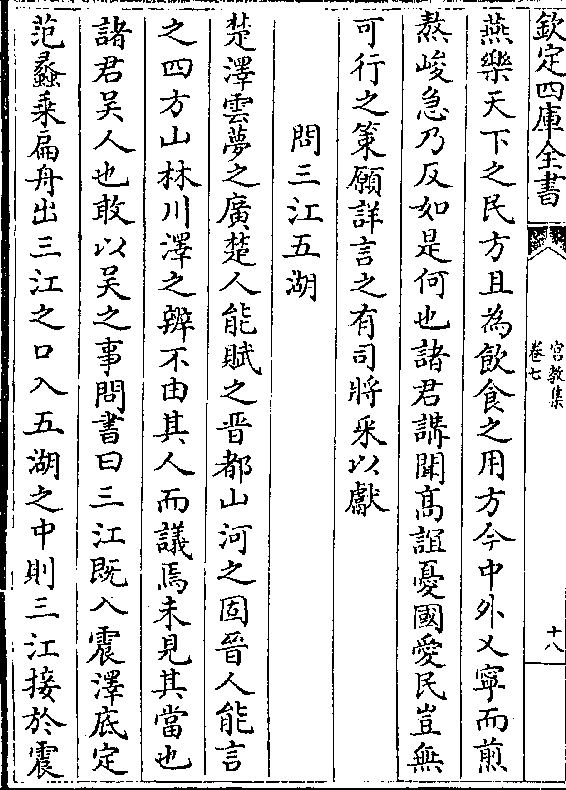 欽定四庫全書
宮教集
卷七
十八
燕樂天下之民方且為飲食之用方今中外乂寧而煎
熬峻急乃反如是何也諸君講聞髙誼憂國愛民豈無
可行之策願詳言之有司將采以獻
問三江五湖
楚澤雲夢之廣楚人能賦之晉都山河之固晉人能言
之四方山林川澤之辨不由其人而議焉未見其當也
諸君吴人也敢以吴之事問書曰三江既入震澤底定
范蠡乗扁舟出三江之口入五湖之中則三江接於震